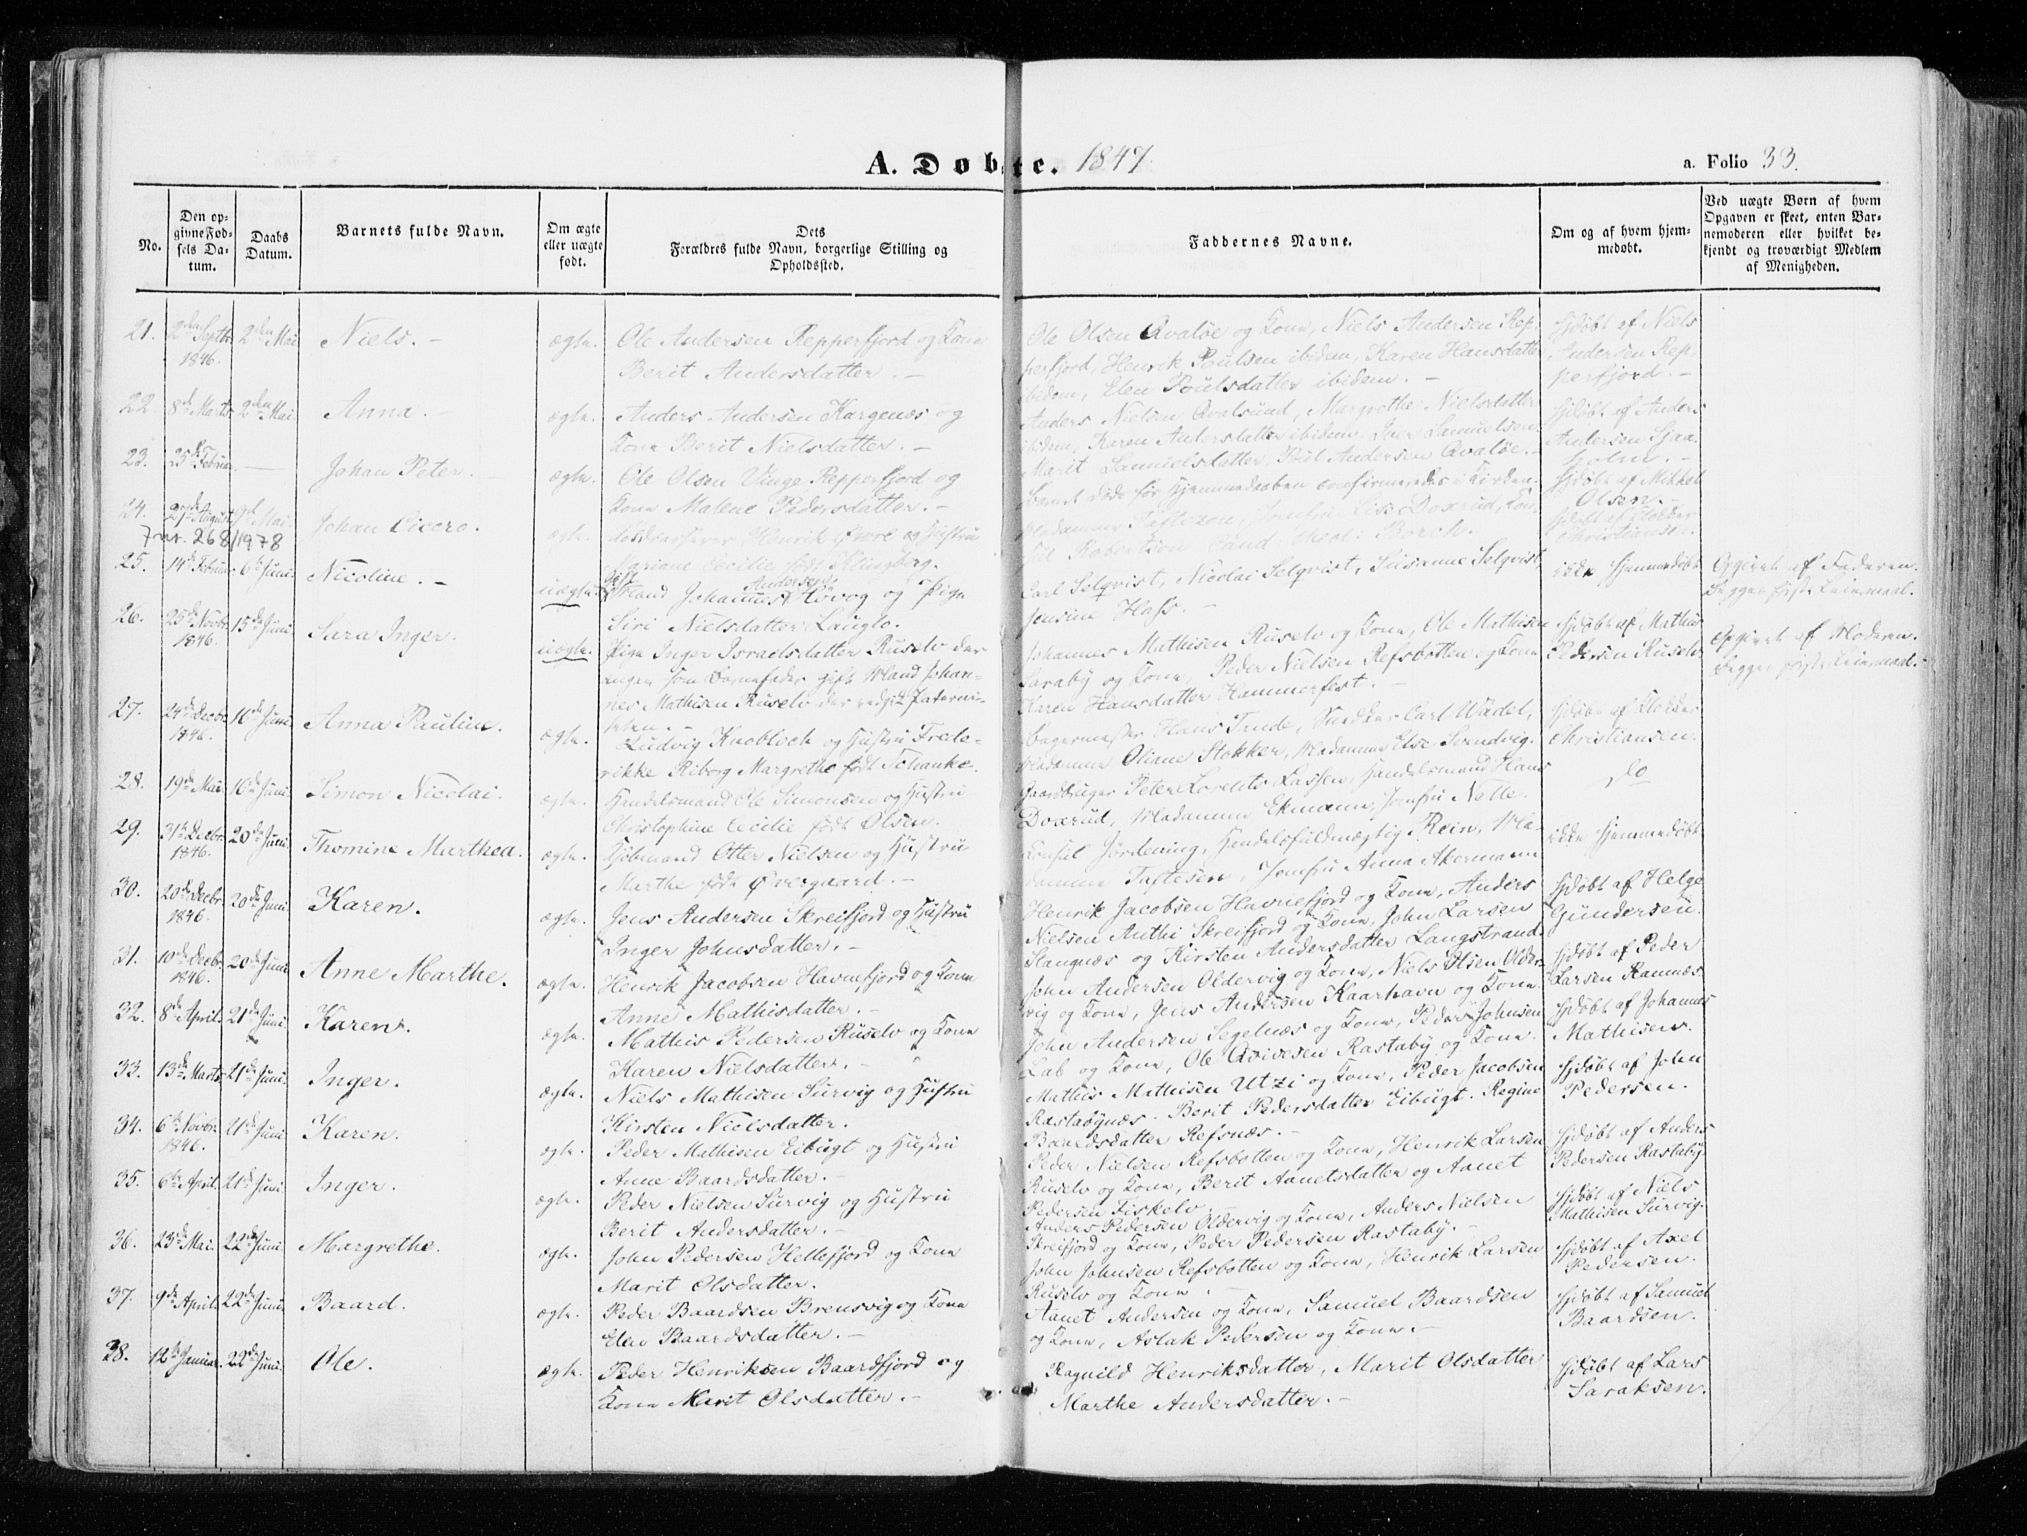 A. Døbte. 1847.
a. Folio 33.
No.
Den op-
givne Fød-
sels Da-
tum.
Daabs
Datum.
Barnets fulde Navn.
Om ægte
eller uægte
født.
Dets
Forældres fulde Navn, borgerlige Stilling og
Opholdssted.
Faddernes Navne.
Om og af hvem hjem-
medøbt.
Ved uægte Børn af hvem
Opgaven er skeet, enten Bar-
nemoderen eller hvilket be-
kjendt og troværdigt Medlem
af Menigheden.
21. 2den Septbr. 1846. 2den Mai Niels. - ægte.
Ole Andersen Repperfjord og Kone
Berit Andersdatter. -
Ole Olsen Qvaløe og Kone, Niels Andersen Rep-
perfjord, Henrik Poulsen ibidem, Karen Hansdatter
ibidem, Elen Poulsdatter ibidem. -
hjdøbt af Niels
Andersen Rep-
perfjord. -
22. 8de Marts 2den Mai Anna. - ægte.
Anders Andersen Kargenæs og
Kone Berit Nielsdatter. -
Anders Nielsen Qvalsund, Margrethe Nielsdatter
ibidem, Karen Andersdatter ibidem, Iver Samuelsen
Marit Samuelsdatter, Poul Andersen Qvaløe. -
hjdøbt af Anders
Andersen
23. 25de Februar — Johan Peter. ægte.
Ole Olsen Vinge Repperfjord og
Kone Malene Pedersdatter. -
Barnet døde før Hjemmedaaben confirmeredes i Kirken.
hjdøbt af Mikkel
Olsen. -
24. 27de August Mai Johan Cicero. ægte.
7 nr. 268/1978
Henrik og Hustru
Mariane Cecilie født Klingberg.
Madamme Taftezon, Jomfru Lise Doxrud,
Robertson, Cand: theol: Borch.
hjdøbt af Klokker
Christiansen.
25. 14de Februar 6te Juni Nicoline. - uægte.
Gift
Mand Johannes Andersen Hovog og Pige
Siri Nielsdatter Lauglo.
Carl Selqvist, Nicolai Selqvist, Susanne Selqvist,
Jensine Hass. -
ikke hjemmedøbt
Opgivet af Faderen.
Begges første Leiermaal.
26. 25de Novbr. 1846. 15de Juni Sara Inger. uægte.
Pige Inger Israelsdatter Ruselv der
angav som Barnefader gift Mand Johan-
nes Mathisen Ruselv der vedgik Paterni-
teten. -
Johannes Mathisen Ruselv og Kone, Ole Mathisen
Saraby og Kone, Peder Nielsen Refsbotten og Kone
Karen Hansdatter Hammerfest. -
hjdøbt af Mathis
Pedersen Ruselv
Opgivet af Moderen.
Begges første Leiermaal. -
27. 24de Decbr. 1846. 16de Juni Anna Pauline. ægte.
Ludvig Knobloch og Hustru Frede-
rikke Riborg Margrethe født Schanke.
Bagermester Hans Tande, Snedker Carl Wadel,
Madamme Oliane Stokker, Madamme Else Svendvig.
hjdøbt af Klokker
Christiansen.
28. 19de Mai 16de Juni. Simon Nicolai. ægte.
Handelsmand Ole Simonsen og Hustru
Christophine Cecilie født Olsen.
Gaardbruger Peter Lorentz Lassen, Handelsmand Hans
Doxrud, Madamme Ekmann, Jomfru Nelle.
do
29. 31te Decbr. 1846. 20de Juni Thomine Marthea. ægte.
Kjøbmand Otter Nielsen og Hustru
Marthe født Overgaard. -
Konsul Jørdening, Handelsfuldmægtig Rein, Ma-
damme Taftesen, Jomfru Anna Akermann
ikke hjemmedøbt
30. 20de Decbr. 1846. 20de Juni Karen. ægte.
Jens Andersen Skreifjord og Hustru
Inger Johnsdatter. -
Henrik Jacobsen Havnefjord og Kone, Anders
Nielsen Anthi Skreifjord og Kone, John Larsen
Stangnæs og Kirsten Andersdatter Langstrand.
hjdøbt af Helge
Gundersen.
31. 10de Decbr. 1846. 20de Juni Anne Marthe. ægte.
Henrik Jacobsen Havnefjord og Kone
Anne Mathisdatter. -
John Andersen Oldervig og Kone, Niels Olsen Older-
vig og Kone, Jens Andersen Kaarhavn og Kone.
hjdøbt af Peder
Larsen Ramnæs
32. 8de April. 21de Juni. Karen. ægte.
Mathis Pedersen Ruselv og Kone
Karen Nielsdatter. -
John Andersen Segelnæs og Kone, Peder Johnsen
Lab og Kone, Ole Qvivesen Rastaby og Kone.
hjdøbt af Johannes
Mathisen.
33. 13de Marts 21de Juni. Inger. ægte.
Niels Mathisen Survig og Hustru
Kirsten Nielsdatter.
Mathis Mathisen Utzi og Kone, Peder Jacobsen
Rastabynæs. Berit Pedersdatter Eibugt. Regine
Baardsdatter Refsnæs. -
hjdøbt af John
Pedersen.
34. 6te Novbr. 1846. 21de Juni Karen. ægte.
Peder Mathisen Eibugt og Hustru
Anne Baardsdatter. -
Peder Nielsen Refsbotten og Kone, Henrik Larsen
Ruselv og Kone, Berit Aanetsdatter og Aanet
Pedersen Fiskelv. -
hjdøbt af Anders
Pedersen Rastaby.
35. 6te April. 21de Juni Inger. ægte.
Peder Nielsen Survig og Hustru
Berit Andersdatter. -
Anders Pedersen Oldervig og Kone, Anders Nielsen
Skreifjord og Kone, Peder Pedersen Rastaby. -
hjdøbt af Niels
Mathisen Survig.
36. 23de Mai. 22de Juni. Margrethe. ægte.
John Pedersen Hellefjord og Kone
Marit Olsdatter.
John Johnsen Refsbotten og Kone, Henrik Larsen
Ruselv og Kone. -
hjdøbt af Axel
Pedersen.
37. 9de April. 22de Juni. Baard. ægte.
Peder Baardsen Brensvig og Kone
Elen Baardsdatter. -
Aanet Andersen og Kone, Samuel Baardsen
og Kone, Aslak Pedersen og Kone. -
hjdøbt af Samuel
Baardsen.
38. 12te Januar. 22de Juni. Ole. ægte.
Peder Henriksen Baardfjord og
Kone Marit Olsdatter. -
Ragnild Henriksdatter, Marit Olsdatter
Marthe Andersdatter. -
hjdøbt af Lars
Saraksen.